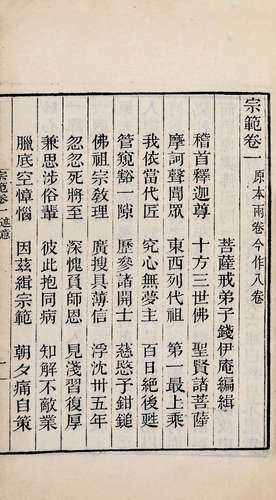 宗範卷一 原本兩卷今作八卷
菩薩戒弟子錢伊庵編輯
稽首釋迦尊 十方三世佛 聖賢諸菩薩
摩訶聲聞眾 東西列代祖 第一最上乘
我依當代匠 究心無夢主 百日絕後甦
管窺豁一隙 歷參諸開士 慈愍予鉗鎚
佛祖宗敎理 廣搜具薄信 浮沈卅五年
忽忽死將至 深愧負師恩 見淺習復厚
兼思涉俗輩 彼此抱同病 知解不敵業
臘底空慞惱 因茲緝宗範 朝夕痛自策
宗範卷一 述意 一